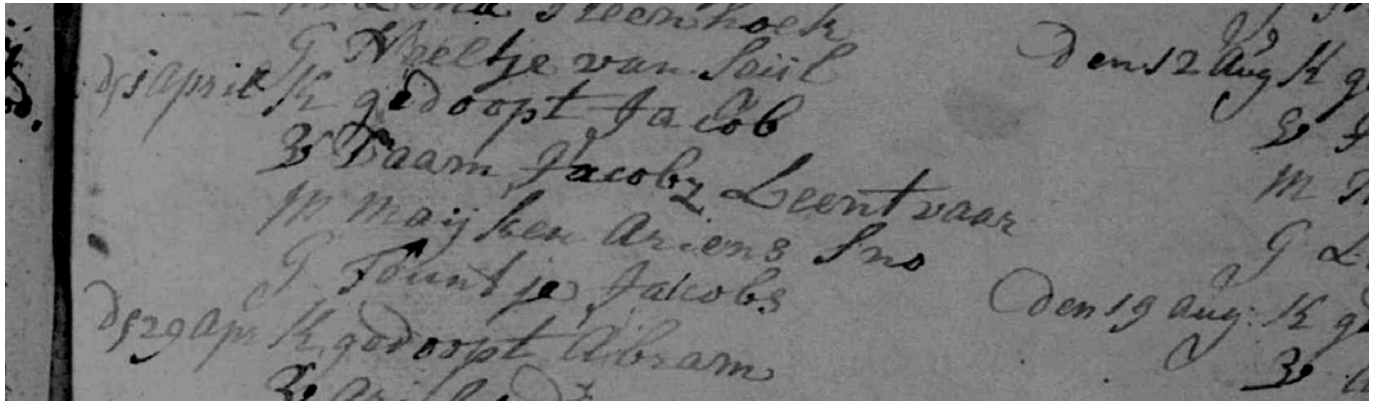 Lena Steenhoek
G Neeltje van Seijl
ds 1 april K gedoopt Jacob
V Daam Jacobz Leentvaar
M Maijken Ariens Sno
G Jacobs
ds 29 apr K gedoopt Abram
V
den 12 aug K
V
M
G
den 19 aug K
V